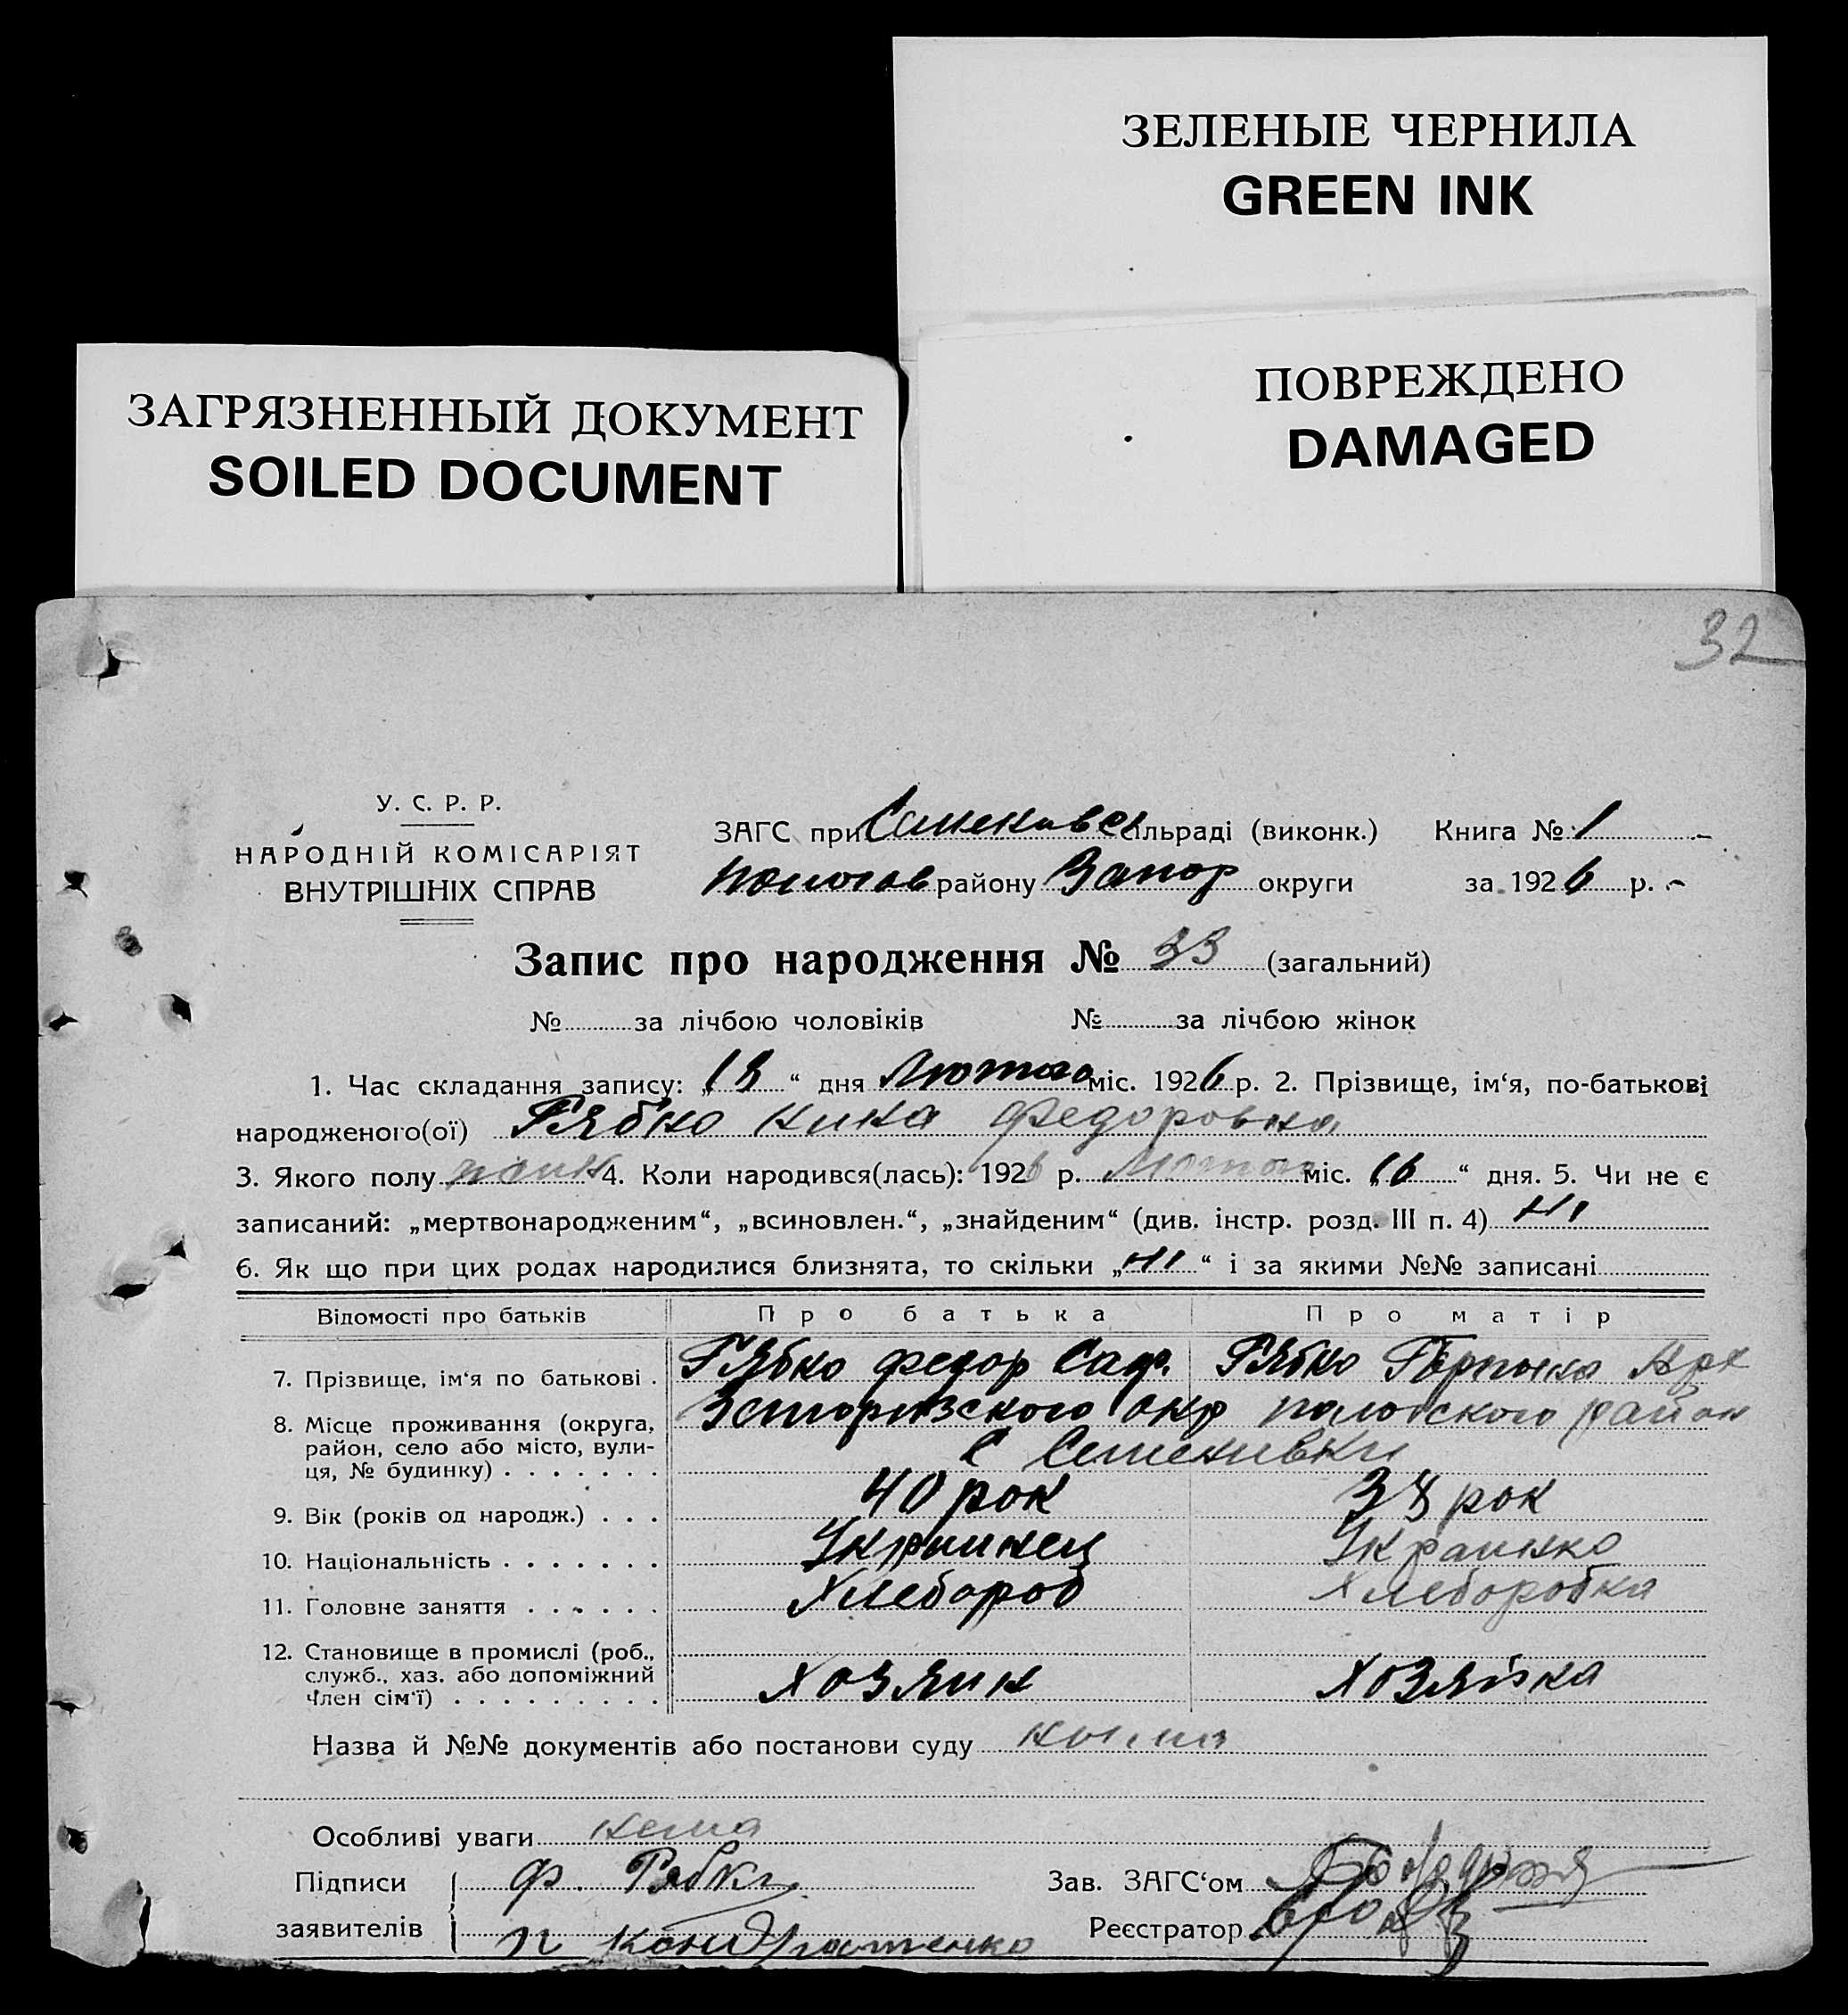 ЗЕЛЕНЫЕ ЧЕРНИЛА
GREEN INK
ПОВРЕЖДЕНО
DAMAGED
ЗАГРЯЗНЕННЫЙ ДОКУМЕНТ
SOILED DOCUMENT
32
У. С. Р. Р.
НАРОДНІЙ КОМІСАРІЯТ
ВНУТРІШНІХ СПРАВ
ЗАГС при Семенивс сільраді (виконк.) Книга № 1
Пологов району Запор округи за 1926 р.
Запис про народження № 33 (загальний)
№ за лічбою чоловіків № за лічбою жінок
1. Час складання запису: „18“ дня Лютого міс. 1926 р. 2. Прізвище, ім‘я, по-батькові
народженого(ої) Рябко Нина Федоровна
3. Якого полу 4. Коли народився(лась): 1926 р. Лютого міс. „16“ дня. 5. Чи не є
записаний: „мертвонародженим“, „всиновлен.“, „знайденим“ (див. інстр. розд. III п. 4) Ні
6. Як що при цих родах народилися близнята, то скільки „ні“ і за якими №№ записані
Відомості про батьків Про батька Про матір
7. Прізвище, ім‘я по батькові . Рябко Федор Рябко
8. Місце проживання (округа, район, село або місто, вулиця, № будинку) . . . . . . . окр пологского район
С Семенивки
9. Вік (років од народж.) . . . 40 рок 38 рок
10. Національність . . . . . . . Украинец Украинка
11. Головне заняття . . . . . . Хлебороб Хлеборобка
12. Становище в промислі (роб., служб., хаз. або допоміжний член сім‘ї) . . . . . . . . . Хозяин Хозяйка
Назва й №№ документів або постанови суду
Особливі уваги нема
Підписи Ф. Рябко Зав. ЗАГС‘ом
заявителів п Кондратенко Реєстратор